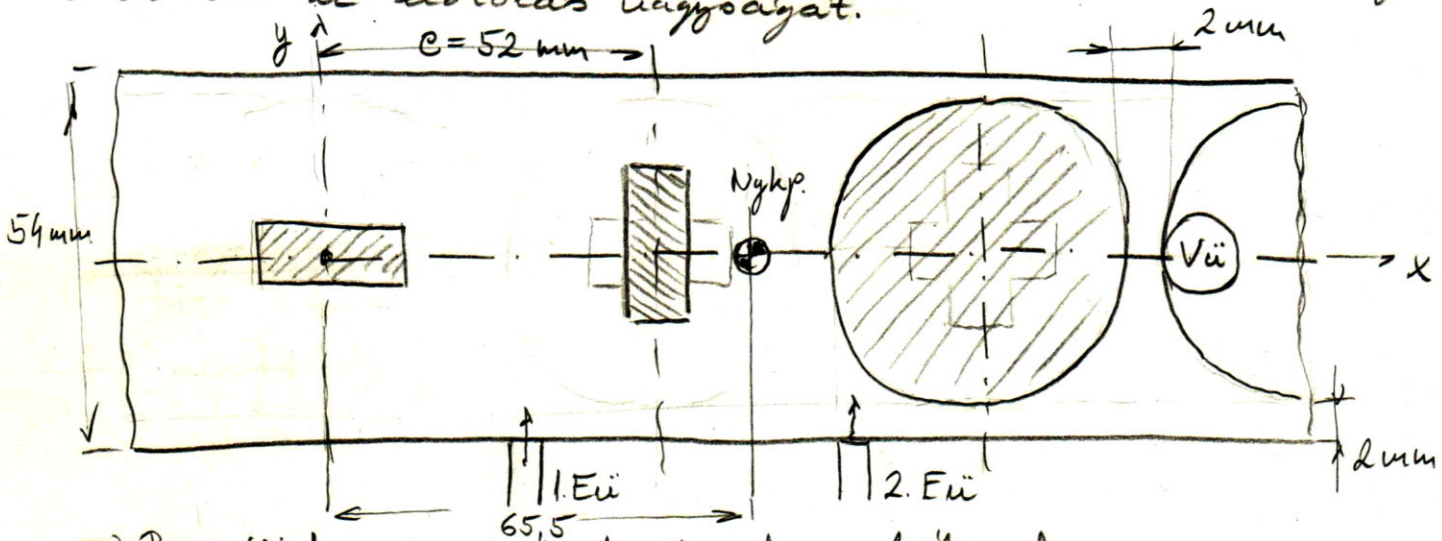 az nagyságát.
y
e = 52 mm
2 mm
54 mm
Nykp.
Vü
x
1. Eü
2. Eü
2 mm
65,5